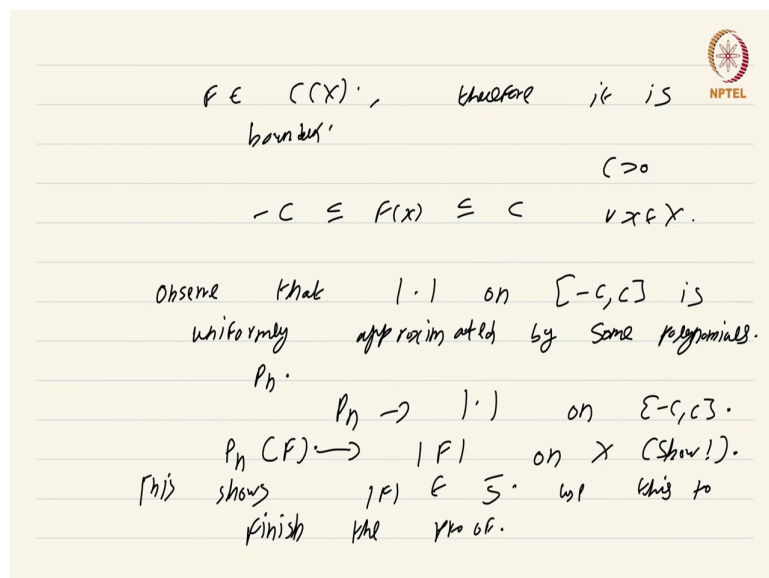 F ∈ C(X)., therefore it is
NPTEL
bounded.
C > 0
-C ≤ F(x) ≤ C ∀ x ∈ X.
Observe that |·| on [-C, C] is
uniformly approximated by some polynomials.
Pn.
Pn → |·| on [-C, C].
Pn (F) → |F| on X (Show!).
This shows |F| ∈ S̄. Use this to
finish the proof.